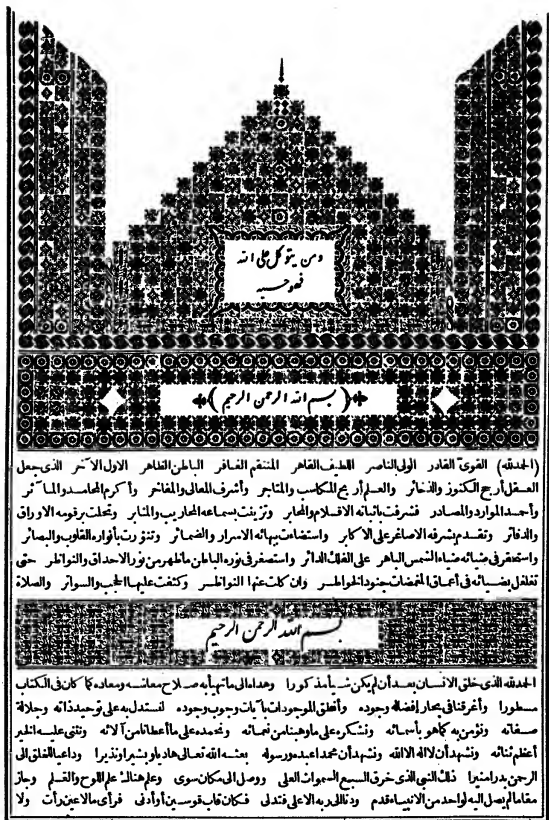 ومن يتوكل على الله
فهو حسبه
بسم الله الرحمن الرحيم
(الحمدلله) القوى القادر الولى الناصر اللطيف القاهر المنتقم الغافر الباطن الظاهر الاول الآخر الذى جعل
العقل أرجح الكنوز والذخائر والعلم أربح المكاسب والمتاجر وأشرف المعالى والمفاخر وأكرم المحامد والمآثر
وأحمد الموارد والمصادر فشرفت باثباته الاقلام والمحابر وتزينت بسماعه المحاريب والمنابر وتحلت برقومه الاوراق
والدفاتر وتقدم بشرفه الاصاغر على الاكابر واستضاءت ببهائه الاسرار والضمائر وتنورت بأنواره القلوب والبصائر
واستحقر فى ضيائه ضياء الشمس الباهر على الفلك الدائر واستصغر فى نوره الباطن ما ظهر من نور الاحداق والنواظر حتى
تغلغل بضيائه فى أعماق المغمضات جنود الخواطر وان كلت عنها النواظر وكثفت عليها الحجب والسواتر والصلاة
بسم الله الرحمن الرحيم
الحمدلله الذى خلق الانسان بعد أن لم يكن شيأ مذكورا وهداه الى ما تهيأ به صلاح معاشه ومعاده كما كان فى الكتاب
مسطورا وأغرقنا فى بحار افضاله وجوده وأنطق الموجودات بآيات وجوب وجوده لنستدل به على توحيد ذاته وجلالة
صفاته ونؤمن به كما هو بأسمائه ونشكره على ما وهبنا من نعمائه ونحمده على ما أعطانا من آلائه ونثنى عليه الخير
أعظم ثنائه ونشهد أن لا اله الا الله ونشهد أن محمدا عبده ورسوله بعثه الله تعالى هاديا ومبشرا ونذيرا وداعيا للخلق الى
الرحمن بدرا منيرا ذلك النبى الذى خرق السبع السموات العلى ووصل الى مكان سوى وعلم هنالك علم اللوح والقلم وجاز
مقاما لم يصل اليه لواحد من الانبياء قدم ودنا الى ربه الاعلى فتدلى فكان قاب قوسين أو أدنى فرأى مالا عين رأت ولا